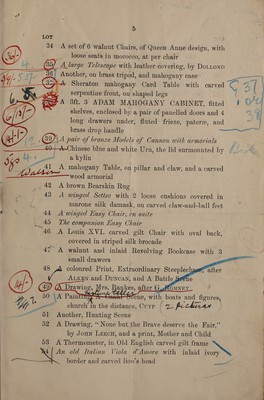 5
LOT
34 A set of 6 walnut Chairs, of Queen Anne design, with
loose seats in morocco, at per chair
35 A large Telescope with leather covering, by DOLLOND
36 Another, on brass tripod, and mahogany case
37 A Sheraton mahogany Card Table with carved
serpentine front, on shaped legs
38 A 3ft. 3 ADAM MAHOGANY CABINET, fitted
shelves, enclosed by a pair of panelled doors and 4
long drawers under, fluted frieze, pateræ, and
brass drop handle
39 A pair of bronze Models of Cannon with armorials
40 A Chinese blue and white Urn, the lid surmounted by
a kylin
41 A mahogany Table, on pillar and claw, and a carved
wood armorial
42 A brown Bearskin Rug
43 A winged Settee with 2 loose cushions covered in
marone silk damask, on carved claw-and-ball feet
44 A winged Easy Chair, en suite
45 The companion Easy Chair
46 A Louis XVI. carved gilt Chair with oval back,
covered in striped silk brocade
47 A walnut and inlaid Revolving Bookcase with 3
small drawers
48 A coloured Print, Extraordinary Steeplechase, after
ALKEN and DUNCAN, and A Battle
49 A Drawing, Mrs. Bankes, after G. ROMNEY
50 A Painting, A Canal Scene, with boats and figures,
church in the distance, CUYP 2 Pictures
51 Another, Hunting Scene
52 A Drawing, "None but the Brave deserve the Fair,"
by JOHN LEECH, and a print, Mother and Child
53 A Thermometer, in Old English carved gilt frame
54 An old Italian Viola d'Amore with inlaid ivory
border and carved lion's head